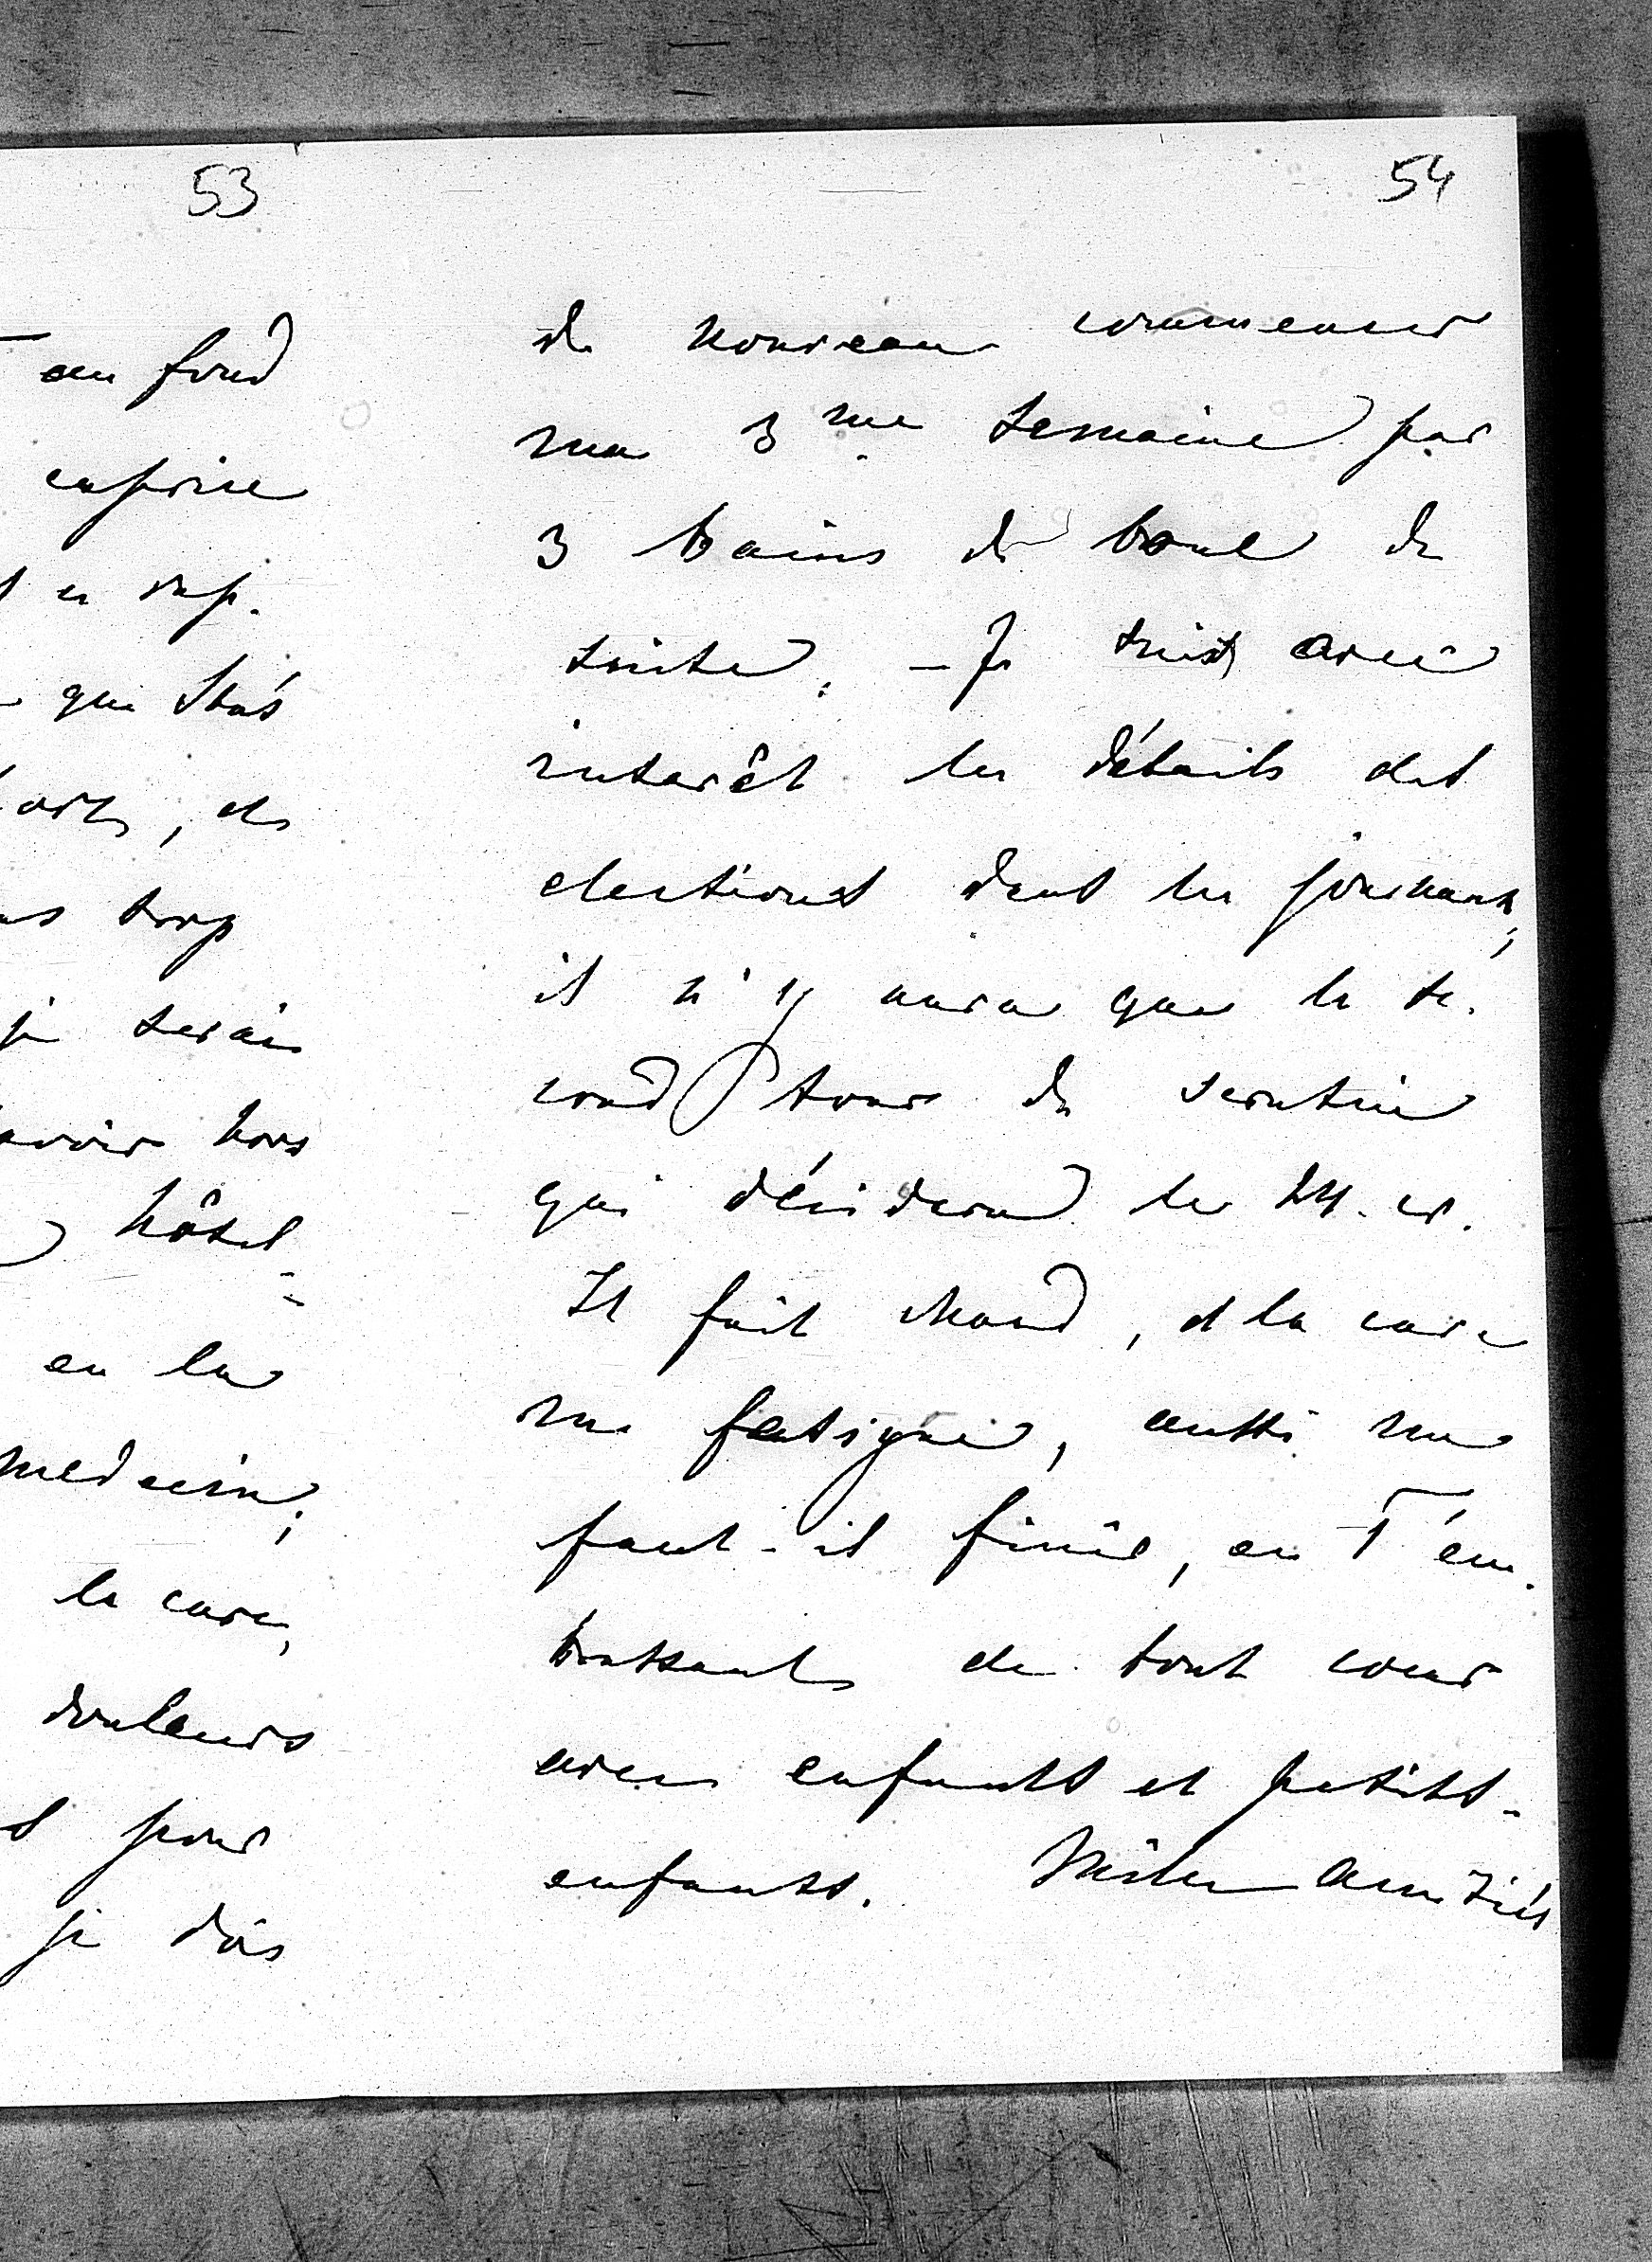 53
au fond
caprice
et en rap.
que Stas
, et
trop
je serai
avoir hors
hôtel
en la
medecin;
la cure,
douleurs
pour
je dois
54
de nouveau commencer
ma 3me semaine par
3 bains de boue de
suite. - Je suis avec
interêt les détails des
elections dans les journaux,
il n'y aura que le se.
cond tour de scrutin
qui décidera le 24. cr.
Il fait chaud, et la cure
me fatigue, aussi me
faut-il finir, en T'em.
brassant de tout coeur
avec enfants et petits-
enfants. Milles amitiés